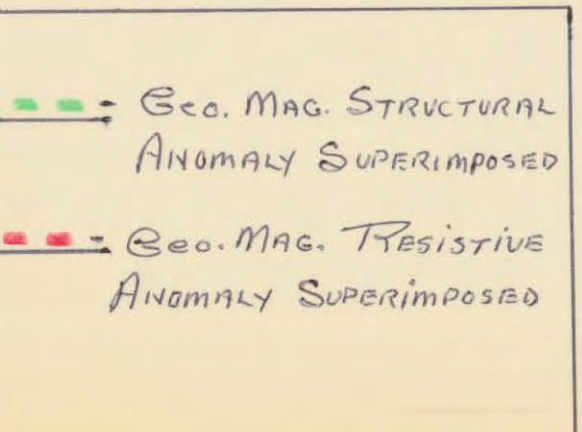 Geo. Mag. Structural
Anomaly Superimposed
Geo. Mag. Resistive
Anomaly Superimposed